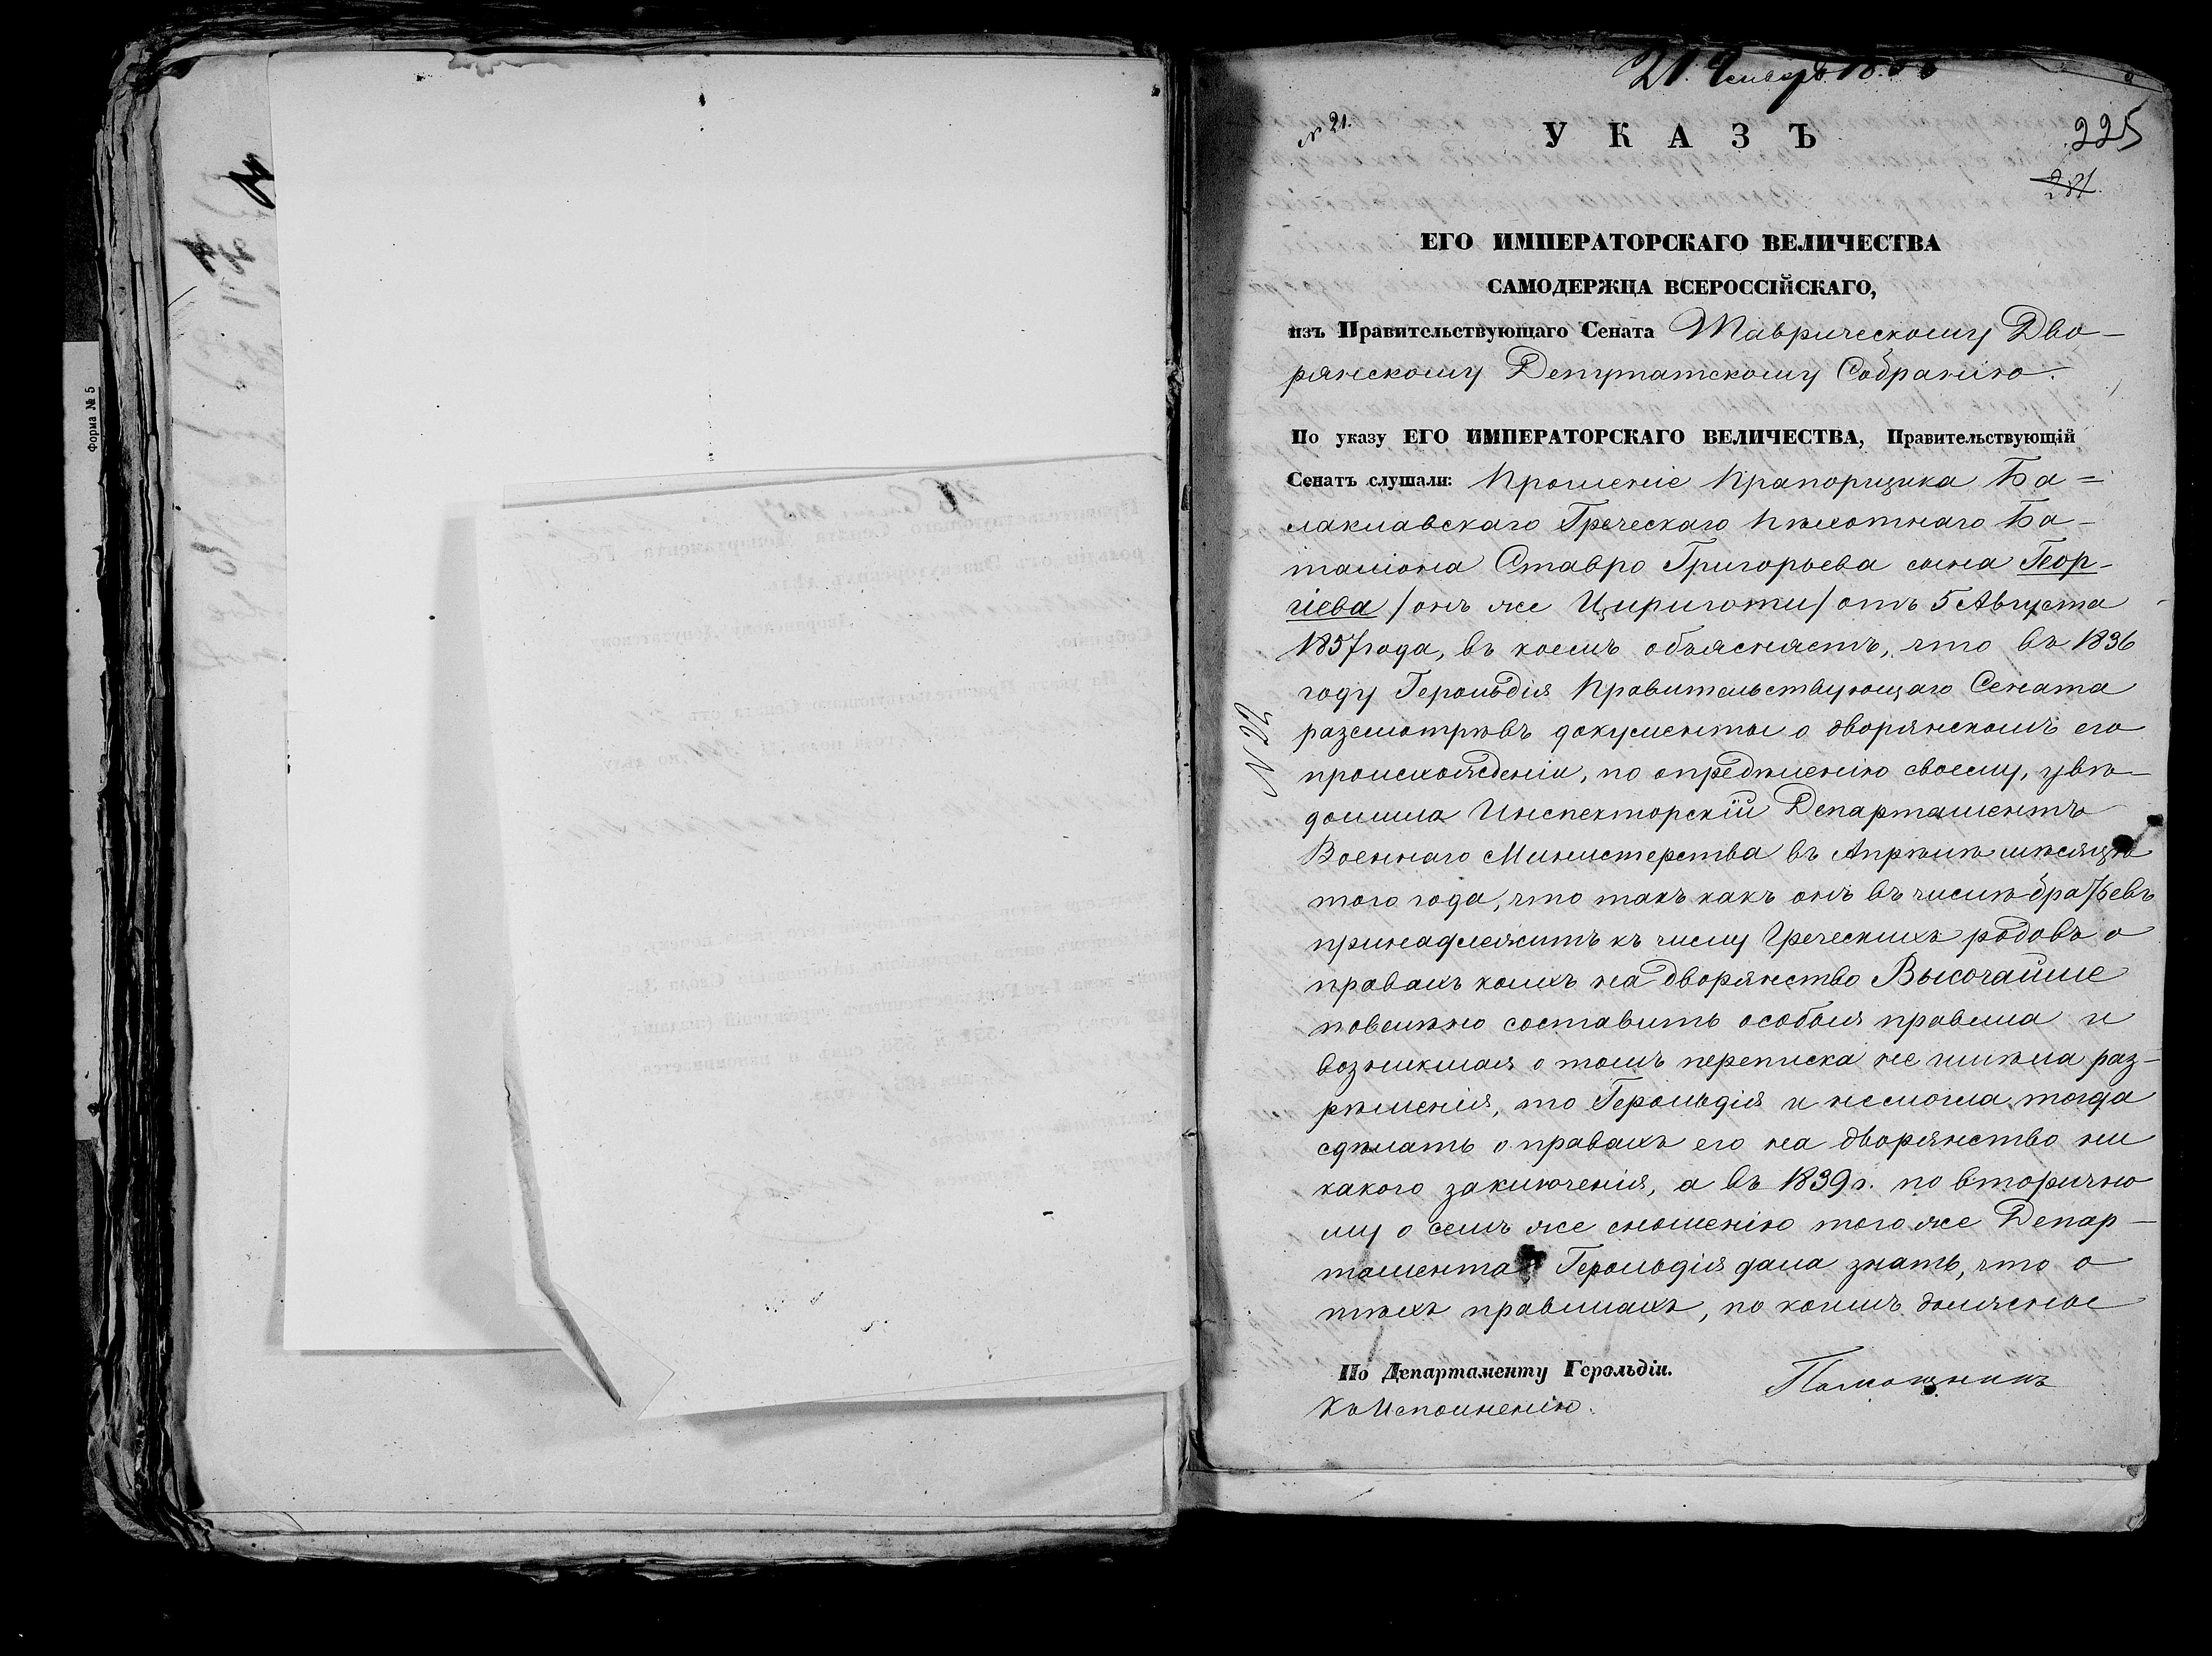 Форма № 5
21 Января 18
№ 21.
УКАЗЪ
225
ЕГО ИМПЕРАТОРСКАГО ВЕЛИЧЕСТВА
САМОДЕРЖЦА ВСЕРОССІЙСКАГО,
изъ Правительствующаго Сената Таврическому Дво-
рянскому Депутатскому Собранію.
По указу ЕГО ИМПЕРАТОРСКАГО ВЕЛИЧЕСТВА, Правительствующій
Сенатъ слушали: Прошеніе Прапорщика Ба=
лаклавскаго Греческаго Пѣхотнаго Ба-
таліона Ставро Григорьева сына Геор-
гіева /онъ же Цириготи/ отъ 5 Августа
1857 года, въ коемъ объясняетъ, что въ 1836
году Герольдія Правительствующаго Сената
разсмотрѣвъ документы о дворянскомъ его
происхожденіи, по опредѣленію своему, увѣ-
домила Инспекторскій Департаментъ
Военнаго Министерства въ Апрѣлѣ мѣсяцѣ
того года, что такъ какъ онъ въ числѣ братьевъ
принадлежитъ къ числу Греческихъ родовъ о
правахъ коихъ на дворянство Высочайше
повелѣно составить особыя правила и
возникшая о томъ переписка не имѣла раз-
рѣшенія, то Герольдія и немогла тогда
сдѣлать о правахъ его на дворянство ни
какого заключенія, а въ 1839 г. по вторично
му о семъ же сношенію того же Депар-
тамента Герольдія дала знать, что о
тѣхъ правилахъ, по коимъ должное
№ 22
По Департаменту Герольдіи.
Къ Исполненію.
Помощникъ